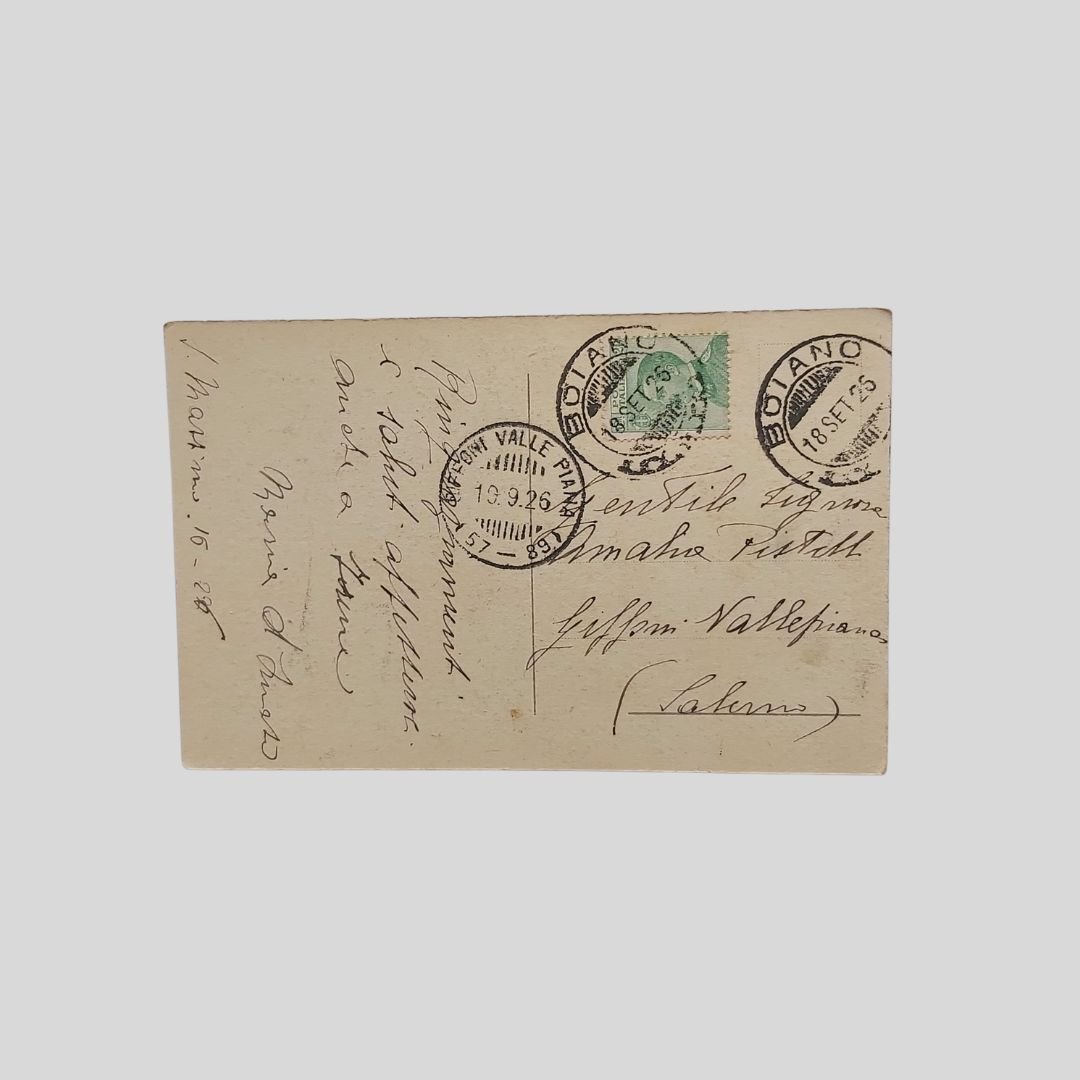 S. Massimo. 16 - 26
Ringraziamenti
e saluti affettuosi
anche a
BOIANO
18 SET 26
BOIANO
18 SET 26
GIFFONI VALLE PIANA
19.9.26
(57 – 89)
Gentile Signora
Amalia Pistelli
Giffoni Vallepiana
(Salerno)